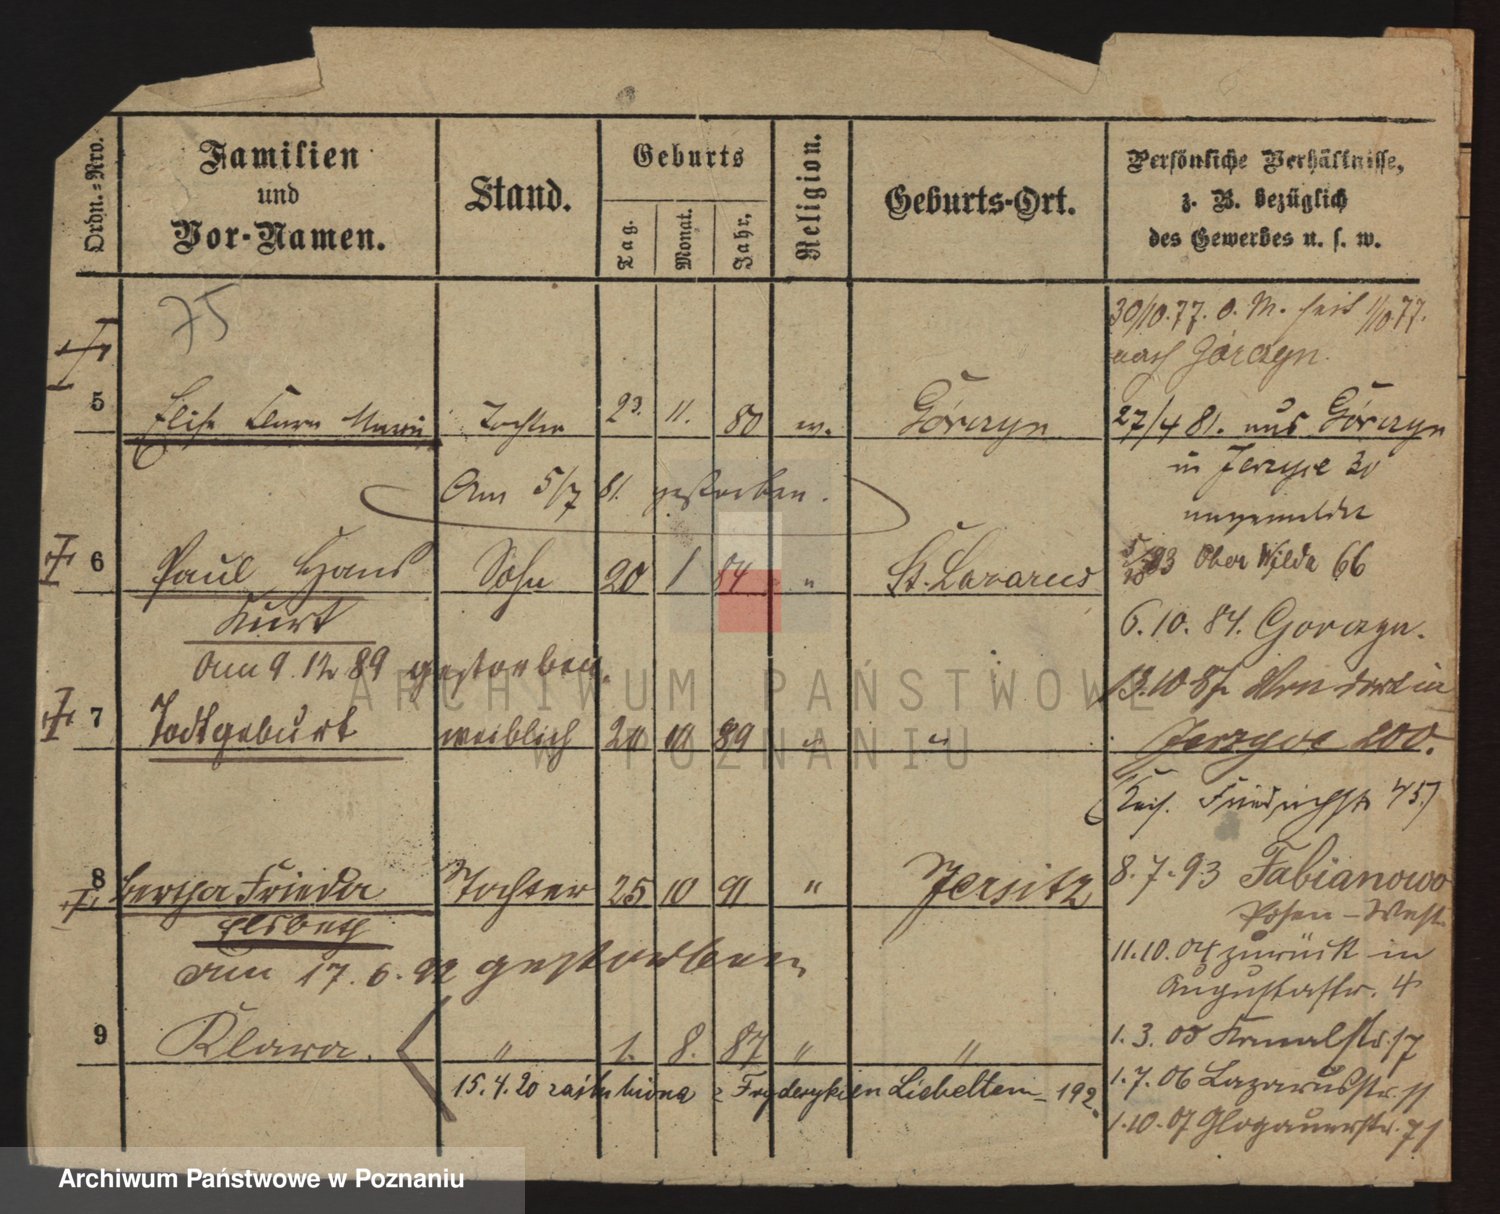 Ordn.-Nro.
Familien
und
Vor-Namen.
Stand.
Geburts
Tag.
Monat.
Jahr.
Religion.
Geburts-Ort.
Persönliche Verhältnisse,
z. B. bezüglich
des Gewerbes u. s. w.
75
30/10.77. o. M. seit 1/10 77.
nach Górczyn.
5 Elise Clara Maria Tochter 23. 11. 80 ev. Górczyn 27/4 81. aus Górczyn
in Jerzyce 30
angemeldet
Am 5/7 81. gestorben.
6 Paul Hans Sohn 20 1 84 " St. Lazarus
Kurt
93 Ober Wilda 66
6. 10. 84. Gorczyn.
Am 9. 12 89 gestorben.
13. 10 87. in
7 Todtgeburt weiblich 20 10 89 " " Jerzyce 200.
Friedrichstr 457
8 Bertha Frieda Tochter 25 10 91 " Jersitz 8. 7. 93 Fabianowo
Posen-West.
Elsbeth
am 17. 6. 92 gestorben
11. 10. 04 zurück in
Augustastr. 4
9 Klara. " 1. 8. 87 " " 1. 3. 05 Kanalstr. 17
15. 4. 20 zaślubiona z Fryderykiem Liebeltem - 192
1. 7. 06 Lazarusstr. 11
1. 10. 07 Glogauerstr. 71
ARCHIWUM PAŃSTWOWE
W POZNANIU
Archiwum Państwowe w Poznaniu